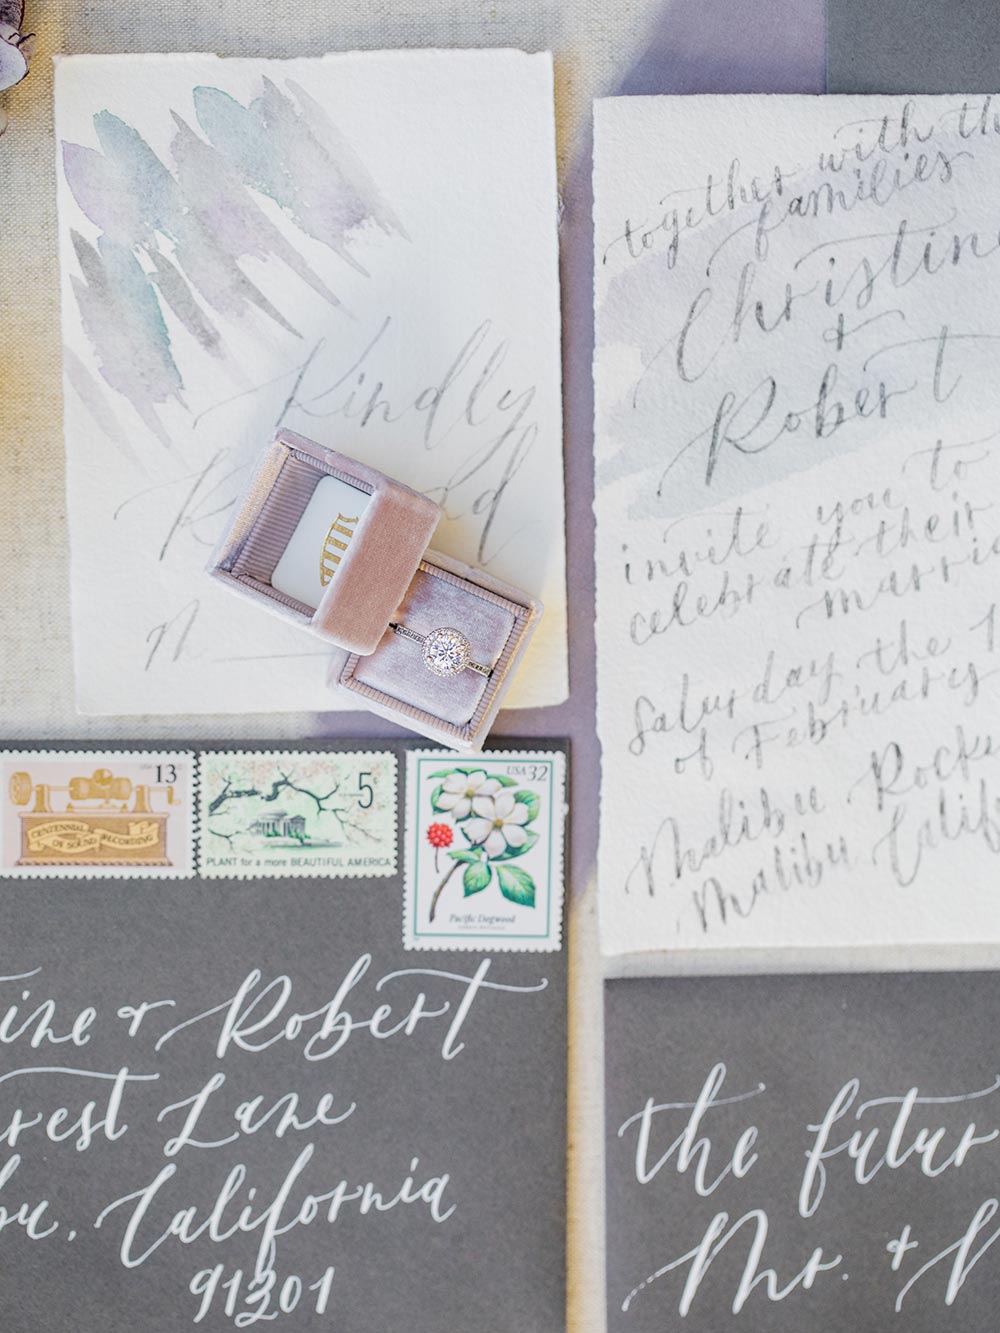 Kindly
M
together with th
families
Christine
+
Robert
invite you to
celebrate their
marri
Saturday the 1
of February
Malibu Rocky
Malibu Calif
USA 13
CENTENNIAL OF SOUND RECORDING
5c
PLANT for a more BEAUTIFUL AMERICA
USA 32
Pacific Dogwood
ine & Robert
rest Lane
bu, California
91301
the futur
Mr. + M